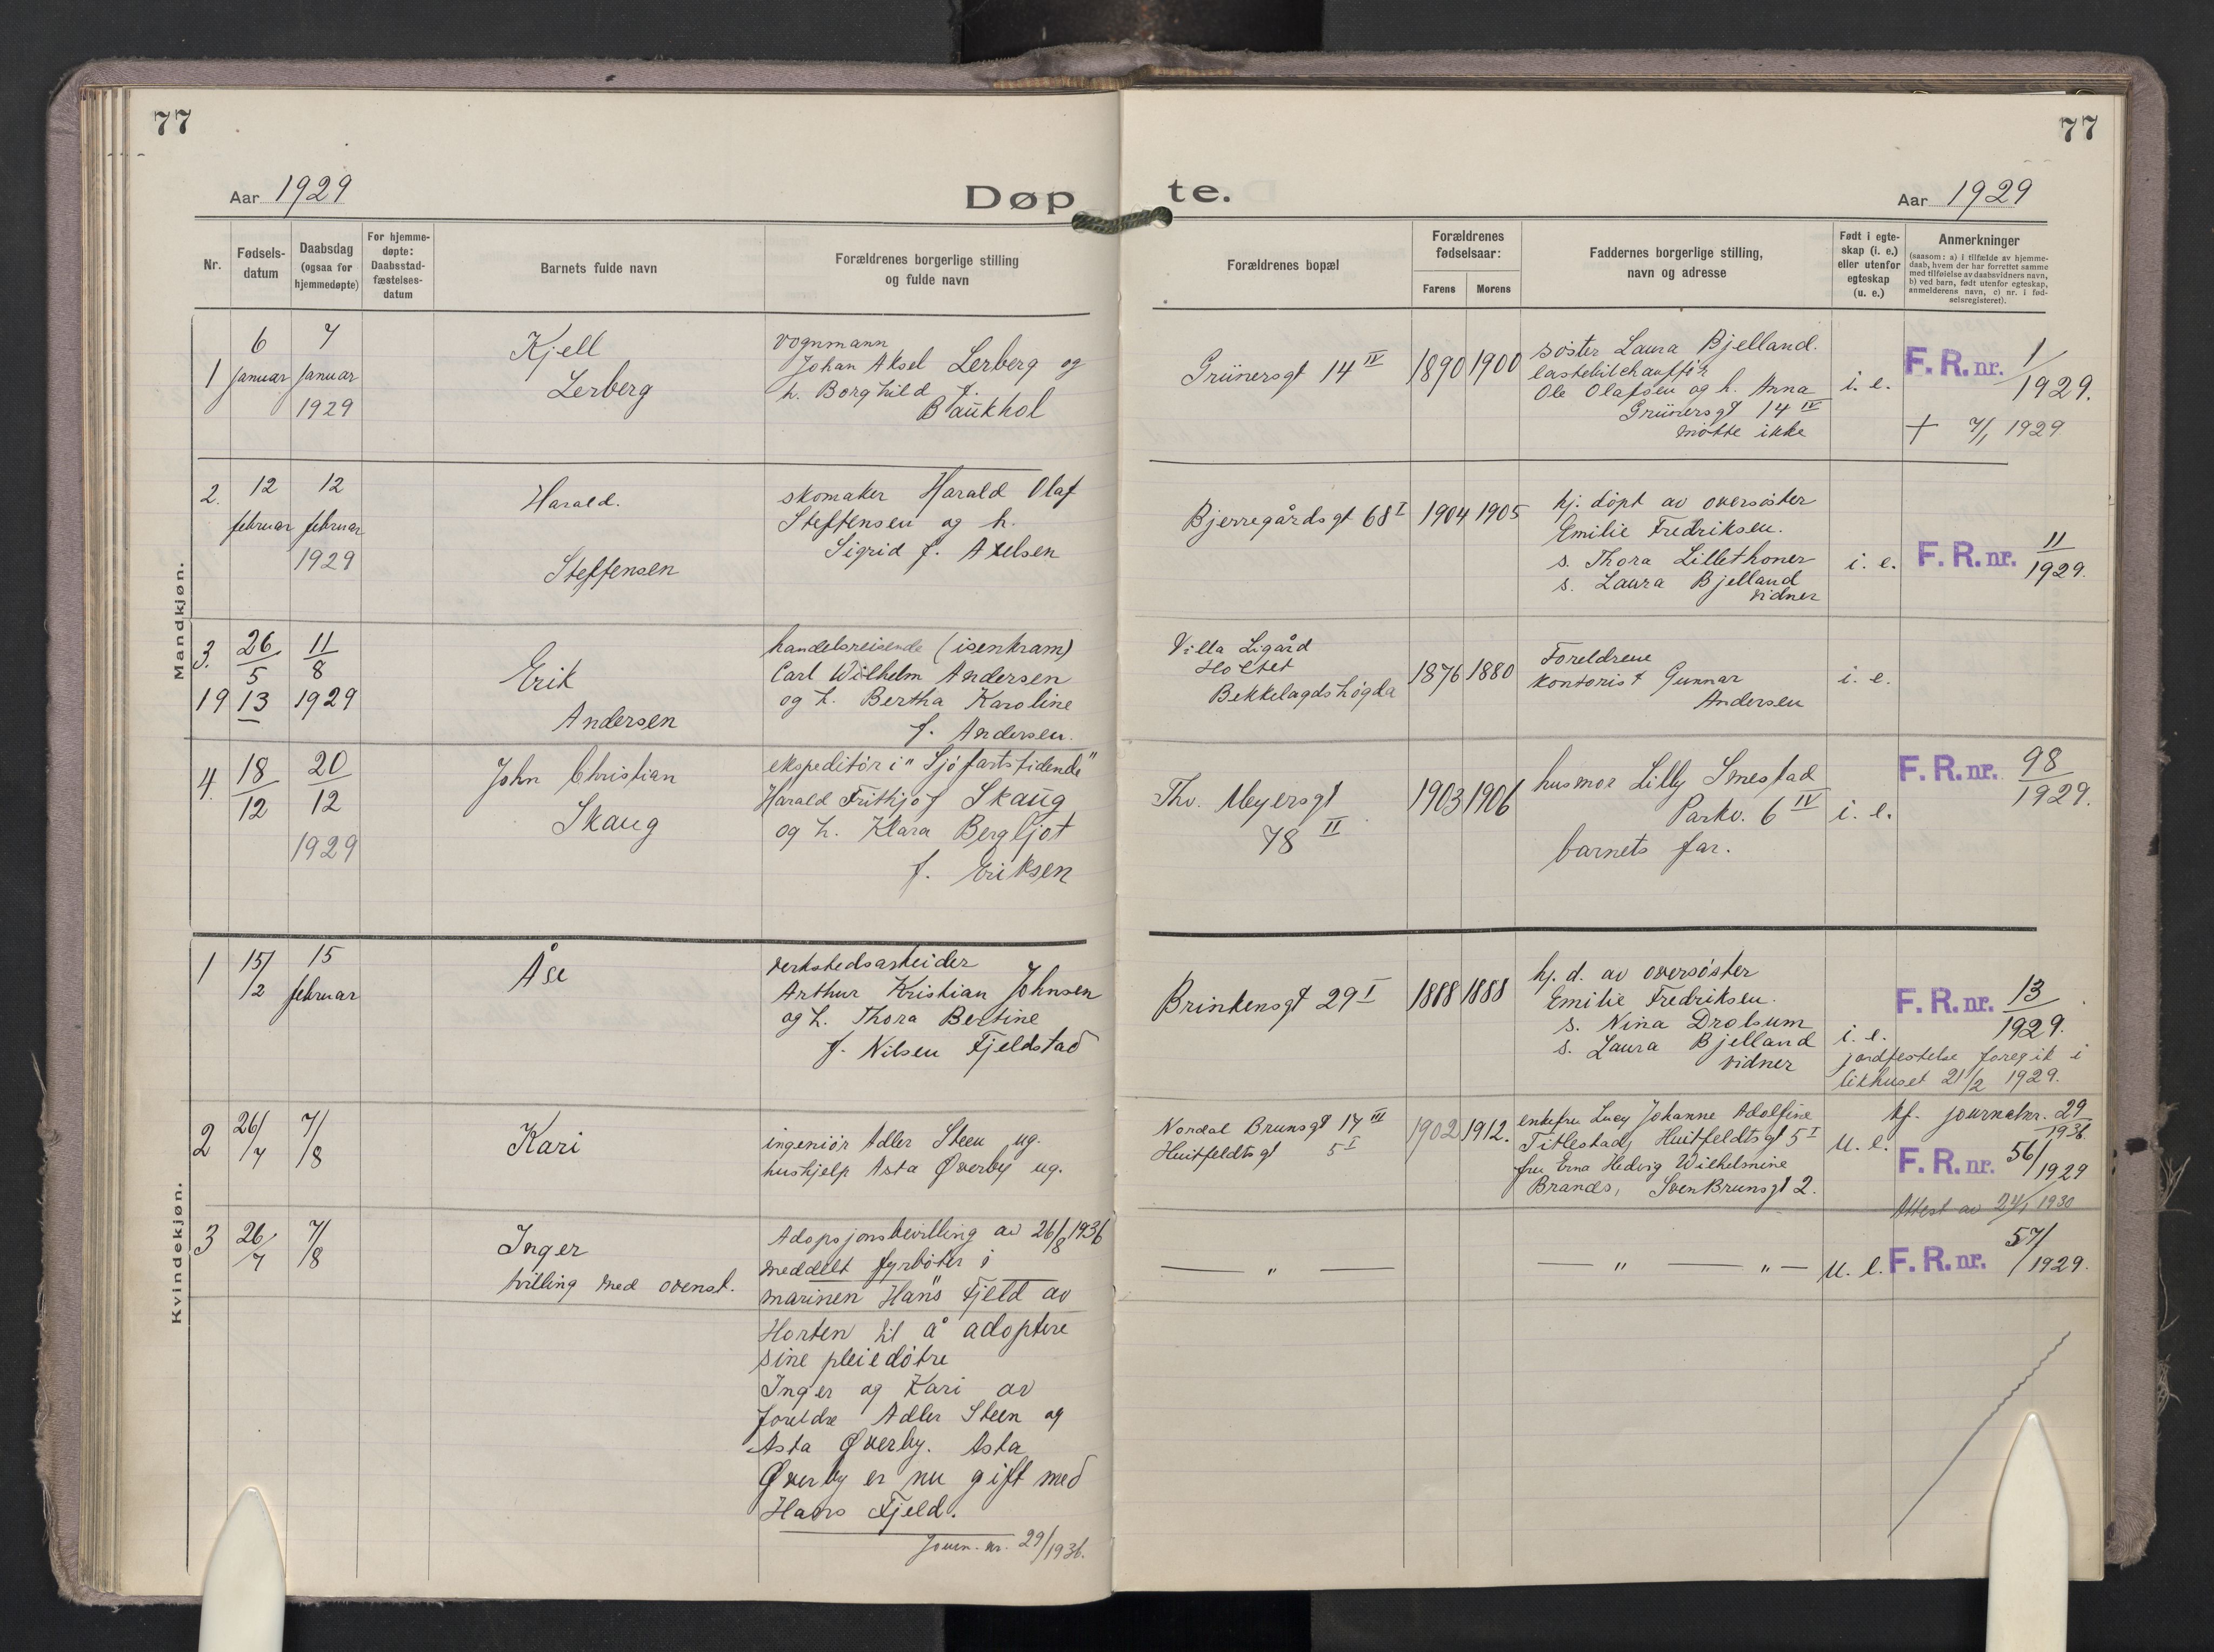 77
77
Aar 1929
Døp
te.
Aar 1929
Nr.
Fødsels-
datum
Daabsdag
(ogsaa for
hjemmedøpte)
For hjemme-
døpte:
Daabsstad-
fæstelses-
datum
Barnets fulde navn
Forældrenes borgerlige stilling
og fulde navn
Forældrenes bopæl
Forældrenes
fødselsaar:
Farens
Morens
Faddernes borgerlige stilling,
navn og adresse
Født i egte-
skap (i. e.)
eller utenfor
egteskap
(u. e.)
Anmerkninger
(saasom: a) i tilfælde av hjemme-
daab, hvem der har forrettet samme
med tilføielse av daabsvidners navn,
b) ved barn, født utenfor egteskap,
anmelderens navn, c) nr. i fød-
selsregisteret).
Mandkjøn.
1
6
januar
7
januar
1929
Kjell
Lerberg
vognmann
Johan Aksel Lerberg og
h. Borghild f.
Baukhol
Grünersgt 14 IV
1890
1900
søster Laura Bjelland.
lastebilchauffør
Ole Olafsen og h. Anna
Grünersgt 14 IV
møtte ikke
i. e.
F. R. nr. 1/1929.
+ 7/1 1929
2.
12
februar
12
februar
1929
Harald.
Steffensen
skomaker Harald Olaf
Steffensen og h.
Sigrid f. Axelsen
Bjerregårdsgt 68 I
1904
1905
hj. døpt av oversøster
Emilie Fredriksen.
s. Thora Lillethoner
s. Laura Bjelland
vidner
i. e.
F. R. nr. 11/1929.
3.
26/5
1913
11/8
1929
Erik
Andersen
handelsreisende (isenkram)
Carl Wilhelm Andersen
og h. Bertha Karoline
f. Andersen.
Villa Ligård
Holtet
Bekkelagdshøgda
1876
1880
Foreldrene
kontorist Gunnar
Andersen
i. e.
4.
18/12
20/12
1929
John Christian
Skaug
ekspeditør i "Sjøfartstidende"
Harald Frithjof Skaug
og h. Klara Bergljot
f. Eriksen
Thv. Meyersgt
78 II
1903
1906
husmor Lilly Smestad
Parkv. 6 IV
barnets far.
i. e.
F. R. nr. 98/1929.
Kvindekjøn.
1
15/2
15
februar
Åse
verkstedsarbeider
Arthur Kristian Johnsen
og h. Thora Bertine
f. Nilsen Fjeldstad
Brinkensgt 29 I
1888
1888
hj. d. av oversøster
Emilie Fredriksen.
s. Nina Drolsum
s. Laura Bjelland
vidner
i. e.
F. R. nr. 13/1929.
jordfestelse foregik i
likhuset 21/2 1929.
2
26/7
7/8
Kari
ingeniør Adler Steen ug.
hushjelp Asta Øverby ug.
Nordal Brunsgt 17 III
Huitfeldtsgt 5 I
1902
1912.
enkefru Lucy Johanne Adolfine
Titlestad, Huitfeldtsgt 5 I
fru Erna Hedvig Wilhelmine
Brandt, Sven Brunsgt 2.
u. e.
kf. journalnr. 29/1936.
F. R. nr. 56/1929
Attest av 24/1 1930
3
26/7
7/8
Inger
tvilling med ovenst.
Adopsjonsbevilling av 26/8 1936
meddelt fyrbøter i
marinen Hans Fjeld av
Horten til å adoptere
sine pleiedøtre
Inger og Kari av
foreldre Adler Steen og
Asta Øverby. Asta
Øverby er nu gift med
Hans Fjeld.
Journ. nr. 29/1936.
— " —
— " — " —
u. e.
F. R. nr. 57/1929.